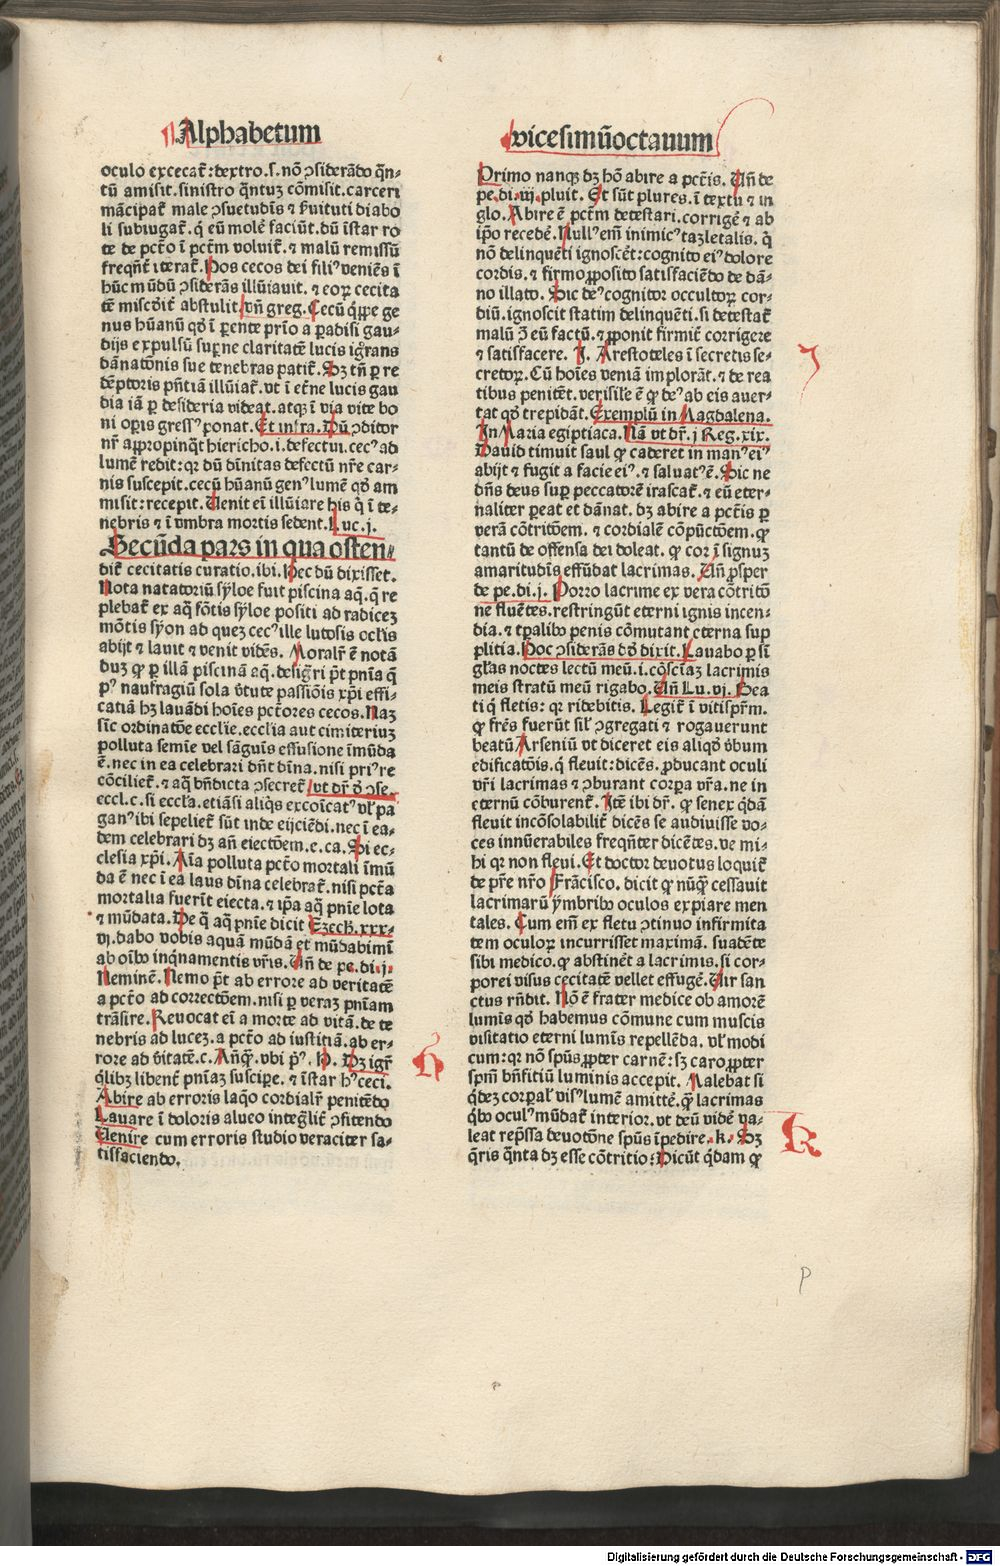 Alphabetum
oculo excecat̄ : dextro.s.nō ɔsiderādo q̄n⸗
tū amisit.sinistro q̄ntuꝫ cōmisit.carceri
mācipat̄ male ɔsuetudīs ⁊ ẜuituti diabo
li subiugat̄. q̄ eū molē faciūt.dū īstar ro
te de pctō ī pctm̄ voluit̄. ⁊ malū remissū
freqn̄t̄ iterat̄. Hos cecos dei filiꝰ veniēs ī
hūc mūdū ɔsiderās illūiauit. ⁊ eoꝝ cecita
tē abstulit. vn̄ greg. Cecū q̄ꝑpe ge
nus hūanū qđ ī ꝑente prīo a ꝑadisi gau⸗
dijs expulsū suꝑne claritatē lucis igr̄ans
dānatōnis sue tenebras patit̄. Sꝫ tn̄ ꝑ re
dēptoris pn̄tiā illūiat̄. vt ī et̄ne lucis gau
dia iā ꝑ desideria videat. atqꝫ ī via vite bo
ni oꝑis gressꝰ ponat. Et infra. Dū ɔditor
nr̄ aꝓpinqt̄ hiericho .i. defectui. cecꝰ ad
lumē redit : qꝛ dū dīnitas defectū nr̄e car⸗
nis suscepit. cecū hūanū genꝰ lumē qđ am
misit : recepit. Uenit eī illūiare his q̄ ī te⸗
nebris ⁊ ī vmbra mortis sedent. Luc.j.
Secūda pars in qua osten⸗
dit̄ cecitatis curatio. ibi. Hec dū dixisset.
Nota natatoriū syloe fuit piscina aq̄. q̄ re
plebat̄ ex aq̄ fōtis syloe positi ad radiceꝫ
mōtis syon ad queꝫ cecꝰ ille lutosis ocl̄is
abijt ⁊ lauit ⁊ venit vidēs. Moralr̄ ē notā
duꝫ ꝙ ꝑ illā piscinā aq̄. desigr̄i pt̄ pnīa q̄
pꝰ naufragiū sola v̄tute passiōis xp̄i effi⸗
catiā hꝫ lauādi hoīes pctōres cecos. Naꝫ
sīc ordinatōe ecclīe. ecclia aut cimiteriuꝫ
polluta semīe vel sāguīs effusione īmūda
ē. nec in ea celebrari dn̄t dīna. nisi priꝰ re
cōciliet̄. ⁊ aq̄ bn̄dicta ɔsecret̄ vt dr̄ đ ɔse.
eccl. c. si eccl̄a. etiāsi aliq̄s excoīcatꝰ vl̓ pa
ganꝰ ibi sepeliet̄ sūt inde eijciēdi. nec ī ea⸗
dem celebrari dꝫ an̄ eiectōem. e. ca. Si ec⸗
clesia xp̄i. Aīa polluta pctō mortali īmū
da ē nec ī ea laus dīna celebrat̄. nisi pctā
mortalia fuerīt eiecta. ⁊ ip̄a aq̄ pnīe lota
⁊ mūdata. De q̄ aq̄ pnīe dicit Ezech.xxx⸗
vj. dabo vobis aquā mūdā et mūdabimī
ab oīb̓ inqnamentis vr̄is. Un̄ de pe. di. j.
Neminē. Nemo pt̄ ab errore ad veritatē
a pctō ad correctōem. nisi ꝑ veraꝫ pnīam
trāsire. Reuocat eī a morte ad vitā. de te
nebris ad luceꝫ. a pctō ad iustitiā. ab er⸗
rore ad v̄itatē. c. Anq̄. vbi pꝰ. H. Dꝫ igr̄
q̄libꝫ libent̄ pnīaꝫ suscipe. ⁊ īstar hꝰ ceci.
Abire ab erroris laqo cordialr̄ penitēdo
Lauare ī doloris alueo integl̄it̄ ɔfitendo
Uenire cum erroris studio veraciter sa⸗
tisfaciendo.
H
vicesimūoctauum
Primo nanqꝫ dꝫ hō abire a pctīs. Un̄ de
pe. di. iij. pluit. Et sūt plures. ī textu ⁊ in
glo. Abire ē pctm̄ detestari. corrigē ⁊ ab
ip̄o recedē. Nullꝰ em̄ inimicꝰ taꝫ letalis. q̄
nō delinquēti ignoscēt : cognito eiꝰ dolore
cordis. ⁊ firmo ꝓposito satisfaciēdo de dā⸗
no illato. Sic deꝰ cognitor occultoꝝ cor⸗
diū. ignoscit statim delinquēti. si detestat̄
malū ꝫ eū factū. ⁊ ꝓponit firmit̄ corrigere
⁊ satisfacere. J. Arestoteles ī secretis se⸗
cretoꝝ. Cū hoīes veniā implorāt. ⁊ de rea
tibus penitēt. verisile ē ꝙ deꝰ ab eis auer⸗
tat qđ trepidāt. Exemplū in Magdalena.
In Maria egiptiaca. Nā vt dr̄. j Reg. xix.
Dauid timuit saul ꝙ caderet in manꝰ eiꝰ
abijt ⁊ fugit a facie eiꝰ. ⁊ saluatꝰ ē. Sic ne
dn̄s deus suꝑ peccatorē irascat̄. ⁊ eū eter⸗
naliter ꝑeat et dānat. dꝫ abire a pctīs ꝑ
verā cōtritōem. ⁊ cordialē cōpūctōem. ꝙ
tantū de offensa dei doleat. ꝙ cor ī signuꝫ
amaritudīs effūdat lacrimas. Un̄ ꝓsper
de pe. di. j. Porro lacrime ex vera cōtritō
ne fluētes. restringūt eterni ignis incen⸗
dia. ⁊ tꝑalib̓ penis cōmutant eterna sup
plitia. Hoc ɔsiderās dđ dixit. Lauabo ꝑ sī
gl̄as noctes lectū meū .i. cōsciāꝫ lacrimis
meis stratū meū rigabo. Un̄ Lu. vj. Bea
ti q̄ fletis : qꝛ ridebitis. Legit̄ ī vitispr̄m.
ꝙ fr̄es fuerūt sil̓ ɔgregati ⁊ rogauerunt
beatū Arseniū vt diceret eis aliqđ v̄bum
edificatōis. q̄ fleuit : dicēs. ꝓducant oculi
vr̄i lacrimas ⁊ ɔburant corꝑa vr̄a. ne in
eternū cōburent̄. Itē ibi dr̄. ꝙ senex q̄dā
fleuit incōsolabilit̄ dicēs se audiuisse vo⸗
ces innūerabiles freqn̄ter dicētes. ve mi⸗
hi qꝛ non fleui. Et doctor deuotus loquit̄
de pr̄e nr̄o Frācisco. dicit ꝙ nūq̄ cessauit
lacrimarū ymbrib̓ oculos expiare men
tales. Cum em̄ ex fletu ɔtinuo infirmita
tem oculoꝝ incurrisset maximā. suadēte
sibi medico. ꝙ abstinēt a lacrimis. si cor⸗
porei visus cecitatē vellet effugē. Uir san
ctus rn̄dit. Nō ē frater medice ob amorē
lumīs qđ habemus cōmune cum muscis
visitatio eterni lumīs repellēda. vl̓ modi
cum : qꝛ nō spūs ꝓpter carnē : sꝫ caro ꝓpter
spm̄ bn̄fitiū luminis accepit. Malebat si
q̄deꝫ corꝑal̓ visꝰ lumē amittē. q̄ lacrimas
q̄b̓ oculꝰ mūdat̄ interior. vt deū vidē va⸗
leat rep̄ssa deuotōne spūs īpedire. k. Sꝫ
q̄ris q̄nta dꝫ esse cōtritio : Dicūt q̄dam ꝙ
J
K
p
Digitalisierung gefördert durch die Deutsche Forschungsgemeinschaft - DFG